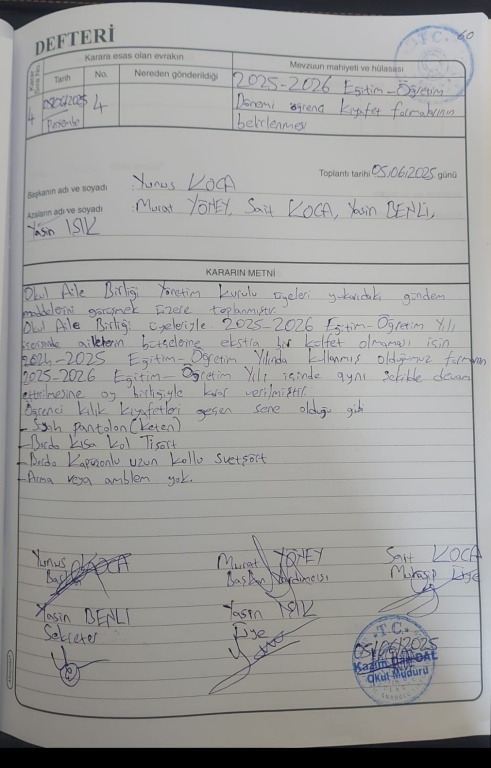 DEFTERİ
60
Karar Sıra No.
Karara esas olan evrakın
Tarih
No.
Nereden gönderildiği
Mevzuun mahiyeti ve hülasası
4
05/06/2025
Perşembe
4
2025-2026 Eğitim-Öğretim
Dönemi öğrenci kıyafet formalarının
belirlenmesi
Toplantı tarihi 05/06/2025 günü
Başkanın adı ve soyadı : Yunus KOCA
Azaların adı ve soyadı : Murat YÖNEY, Sait KOCA, Yasin BENLİ,
Yasin IŞIK
KARARIN METNİ
Okul Aile Birliği Yönetim kurulu üyeleri yukarıdaki gündem
maddelerini görüşmek üzere toplanmıştır.
Okul Aile Birliği üyeleriyle 2025-2026 Eğitim-Öğretim Yılı
içerisinde ailelerin bütçelerine ekstra bir külfet olmaması için
2024-2025 Eğitim-Öğretim Yılında kullanmış olduğumuz formanın
2025-2026 Eğitim-Öğretim Yılı içinde aynı şekilde devam
ettirilmesine oy birliğiyle karar verilmiştir.
Öğrenci kılık kıyafetleri geçen sene olduğu gibi
- Siyah pantolon (keten)
- Bordo kısa kol Tişört
- Bordo Kapüşonlu uzun kollu svetşört
- Arma veya amblem yok.
Yunus KOCA
Murat YÖNEY
Sait KOCA
Başkan Yardımcısı
Muhasip Üye
Yasin BENLİ
Yasin IŞIK
Sekreter
Üye
T.C.
05/06/2025
Okul Müdürü